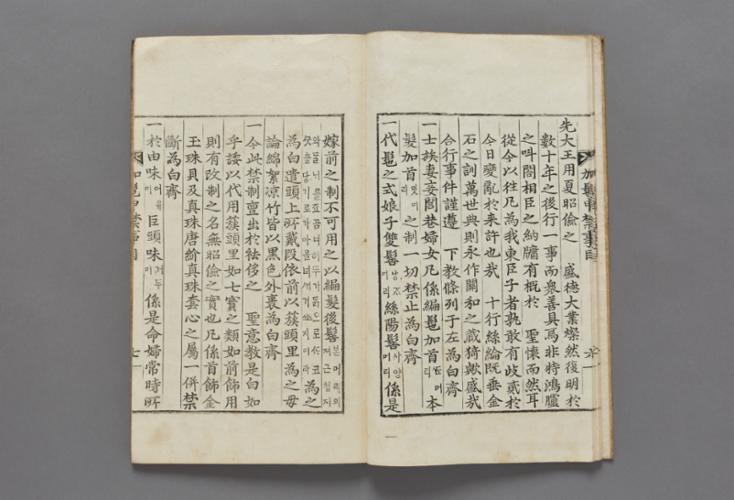 先大王用夏昭儉之 盛德大業燦然後明於
數十年之後行一事而衆善具焉非特鴻臚
之叫閤相臣之納牖有槪於 聖懷而然耳
從今以往凡為我東臣子者孰敢有歧貳於
今日變亂於來許也哉 十行絲綸旣垂金
石之訓萬世典則永作關和之蔵猗歟盛哉
合行事件謹遵 下敎條列于左為白齊
一士族妻妾閭巷婦女凡係編髢加首 本
髮加首之制一切禁止為白齊
一代髢之式娘子雙髻 絲陽髻 사양머리 係是
加髢申禁事目 六
嫁前之制不可用之以編髮後髻
為之
為白遣頭上所戴段依前以簇頭里為之毋
論綿絮凉竹皆以黑色外裹為白齊
一今此禁制亶出於祛侈之 聖意教是白如
乎諉以代用簇頭里如七寶之類如前飾用
則有改制之名無昭儉之實也凡係首飾金
玉珠貝及真珠唐紒真珠套心之屬一倂禁
斷為白齊
一於由味 어유미 巨頭味 거두미 係是命婦常時所
加髢申禁事目 七